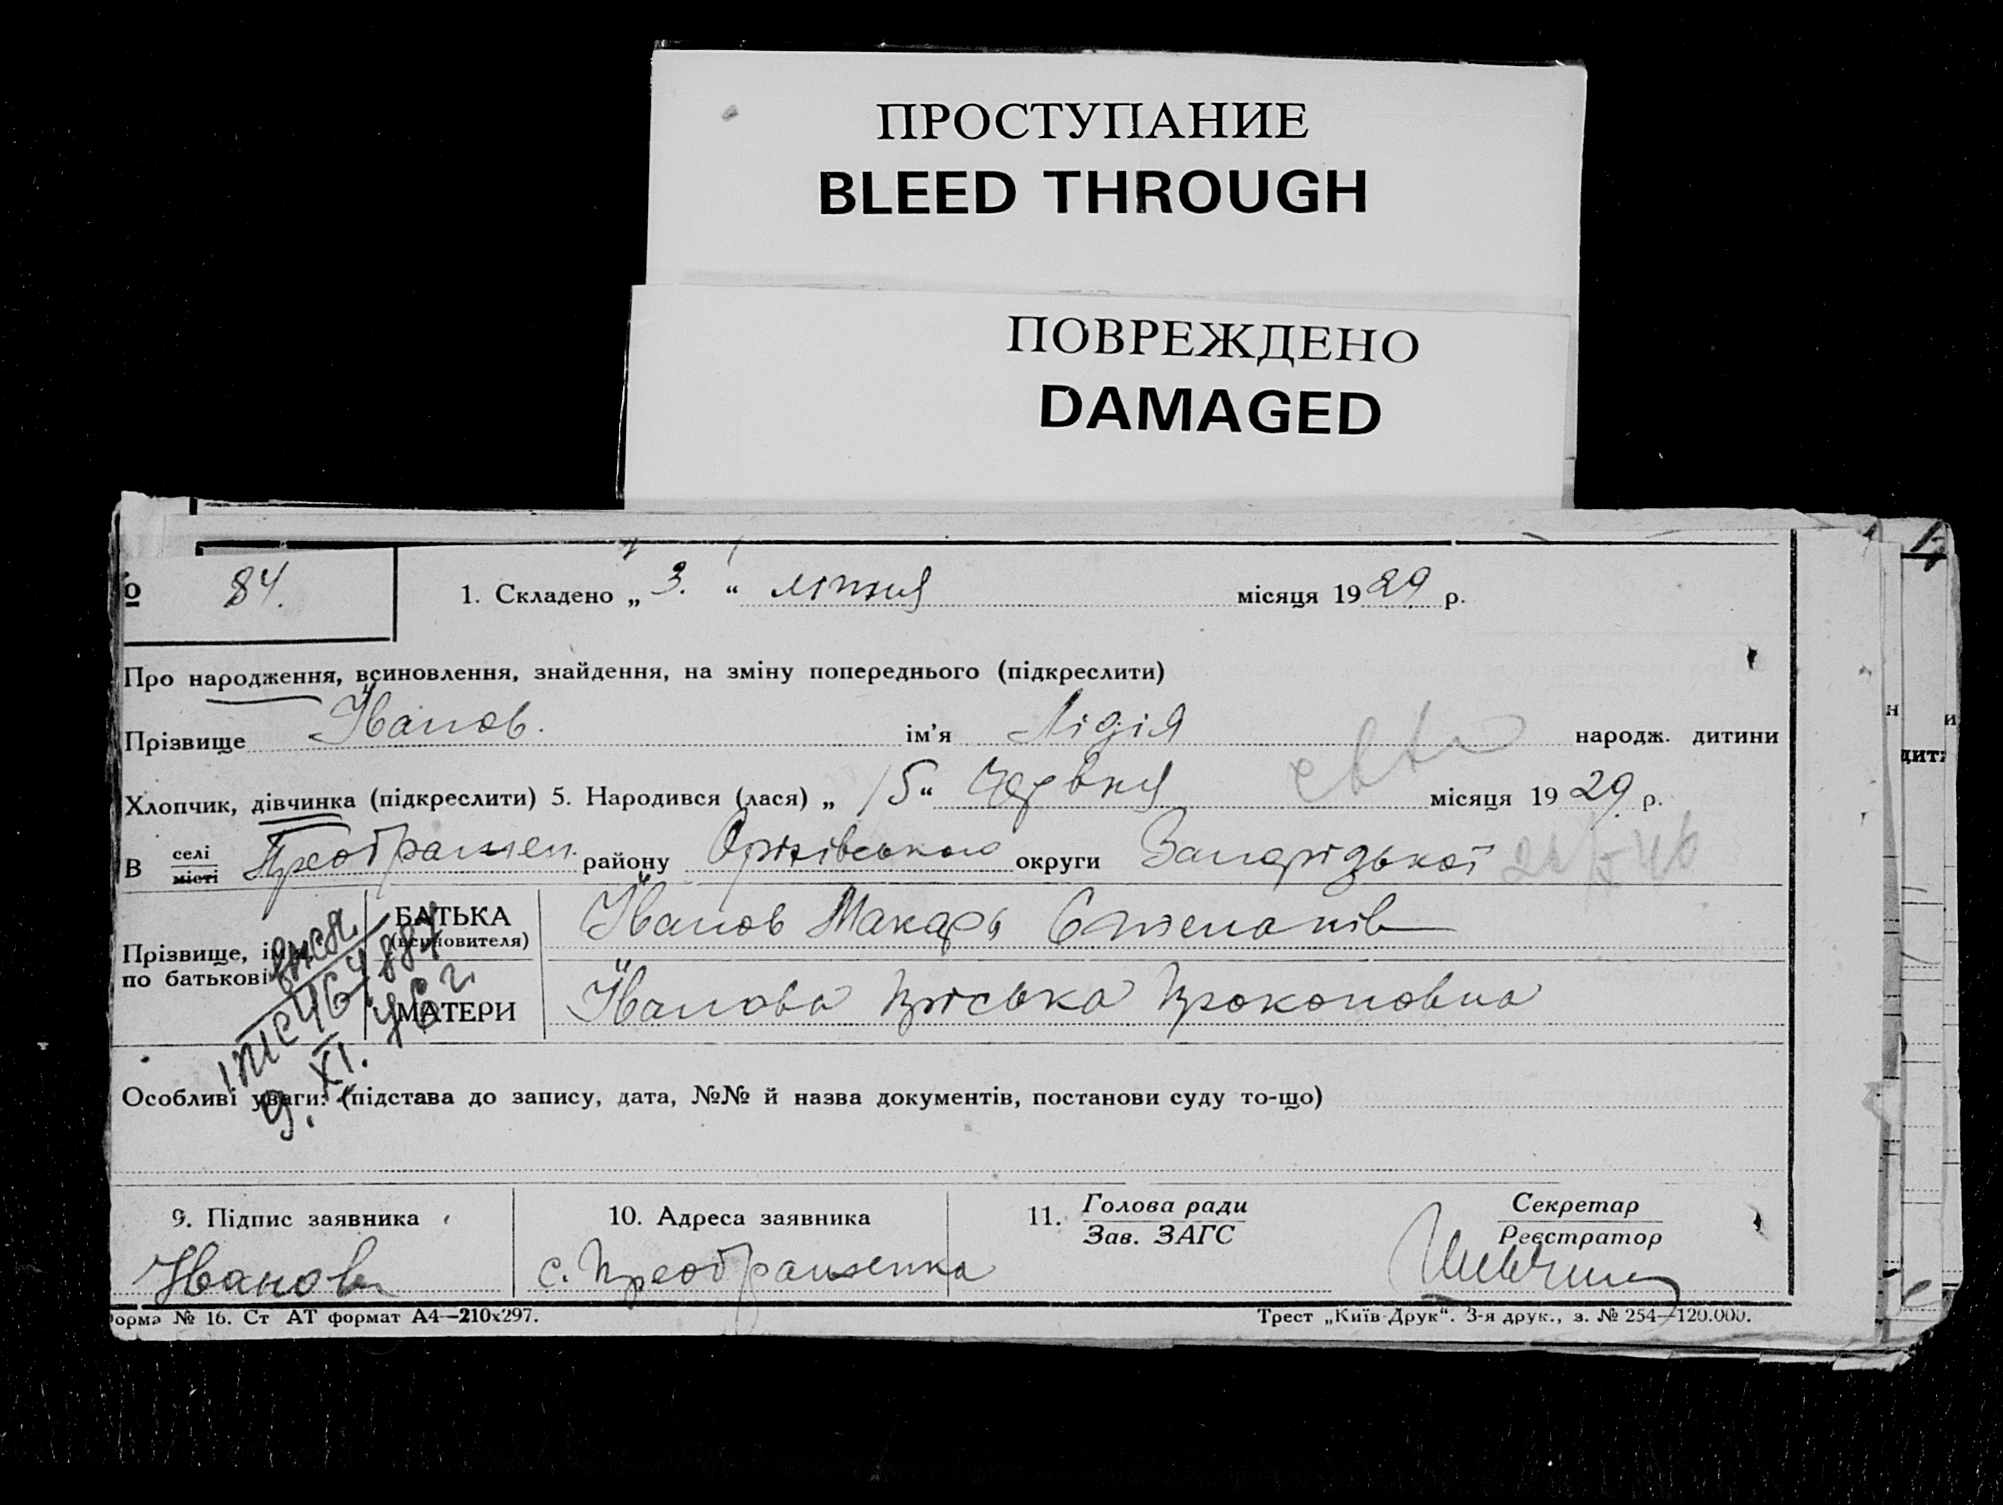 ПРОСТУПАНИЕ
BLEED THROUGH
ПОВРЕЖДЕНО
DAMAGED
84. 1. Складено „ 3. “ липня місяця 1929 р.
Про народження, всиновлення, знайдення, на зміну попереднього (підкреслити)
Прізвище Іванов. ім’я Лідія народж. дитини
Хлопчик, дівчинка (підкреслити) 5. Народився (лася) „ 15 “ Червня місяця 1929 р.
В селі місті Преображен. району Оріхівського округи Запорізької
Прізвище, ім'я по батькові БАТЬКА (всиновителя) Іванов Макарь Степанів
МАТЕРИ Іванова Пріська Прокоповна
9. XI. 46 г.
Особливі уваги: (підстава до запису, дата, №№ й назва документів, постанови суду то-що)
9. Підпис заявника 10. Адреса заявника 11. Голова ради Зав. ЗАГС Секретар Реєстратор
Иванов с. Преображенка
орма № 16. Ст АТ формат А4—210х297. Трест „Київ-Друк“. 3-я друк., з. № 254—120.000.